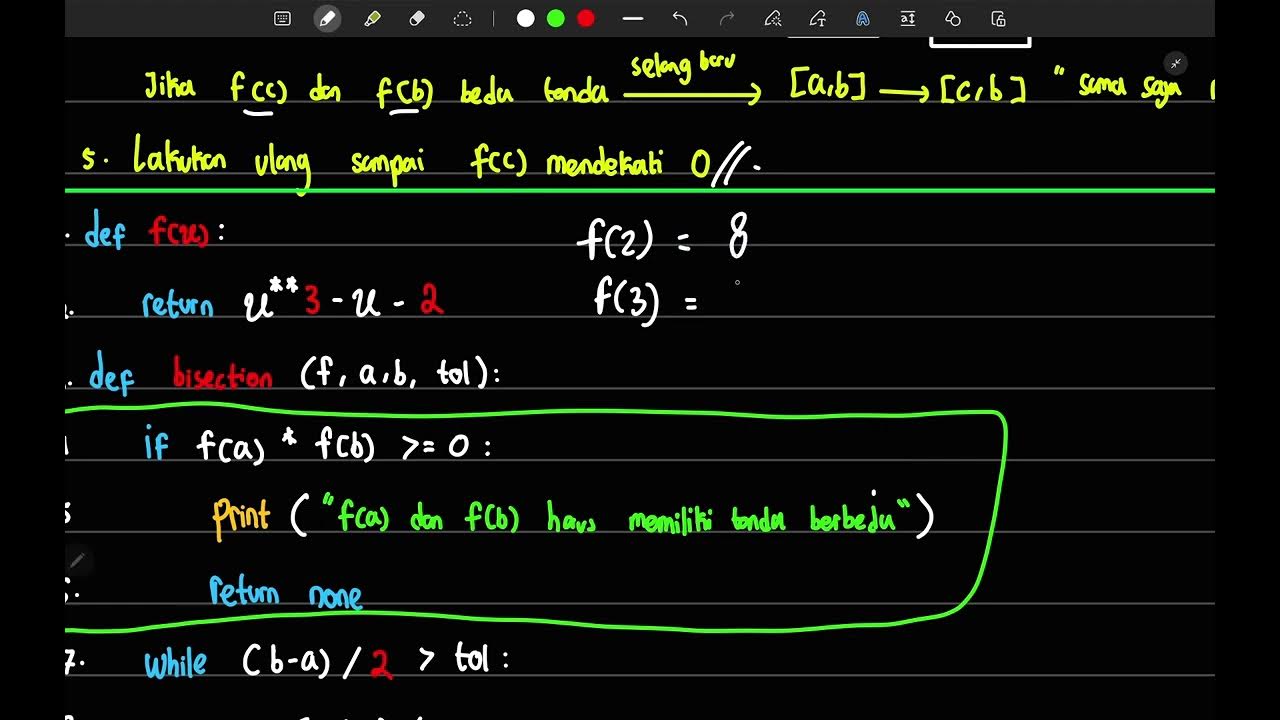 Jika f(c) dan f(b) beda tanda selang baru [a,b] → [c,b] " sama saja
5. Lakukan ulang sampai f(c) mendekati 0//.
. def f(x): f(2) = 8
. return x**3 - x - 2 f(3) =
. def bisection (f, a,b, tol):
if f(a) * f(b) >= 0 :
print ("f(a) dan f(b) harus memiliki tanda berbeda")
. return none
7. while (b-a) / 2 > tol :